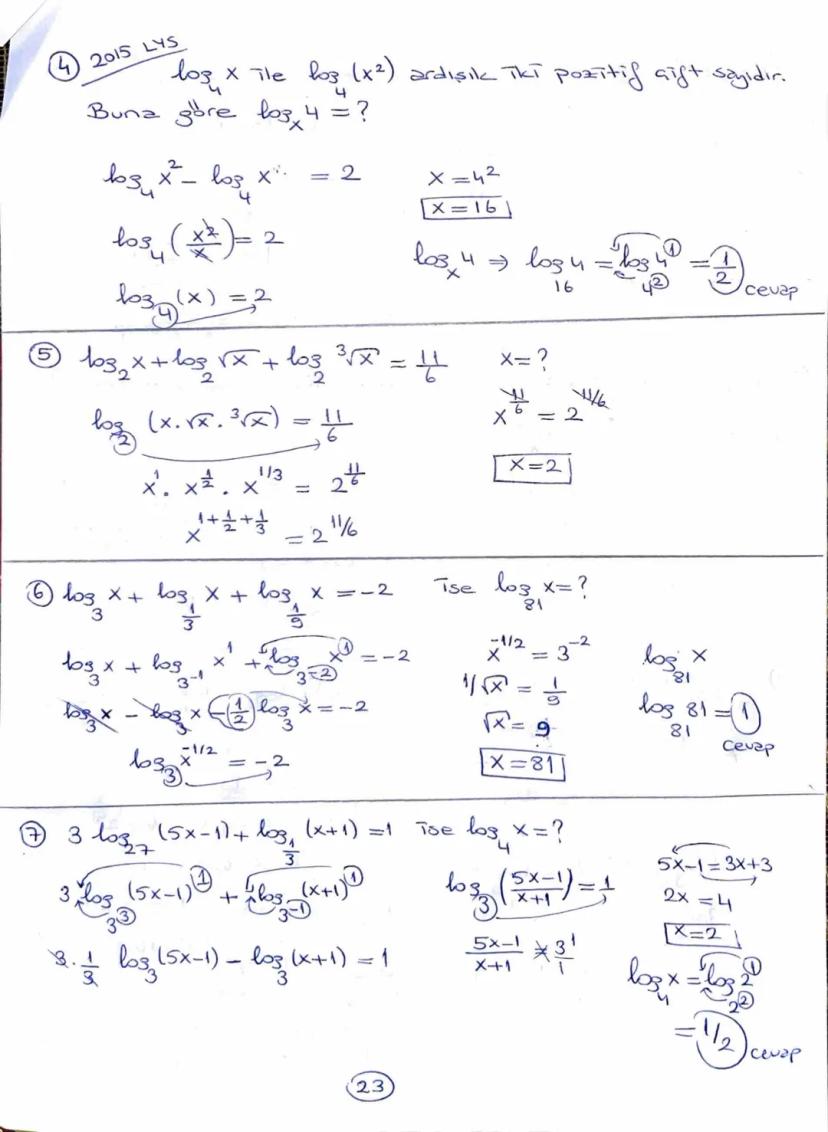 ④ 2015 LYS
log₄ x ile log₄ (x²) ardışık iki pozitif çift sayıdır.
Buna göre logₓ 4 = ?
log₄ x² - log₄ x = 2
log₄ (x²/x) = 2
log₄ (x) = 2
x = 4²
x = 16
logₓ 4 ⇒ log₁₆ 4 = log_{4²} 4¹ = 1/2 cevap
⑤ log₂ x + log₂ √x + log₂ ³√x = 11/6   x = ?
log₂ (x.√x.³√x) = 11/6
x¹. x^{1/2}. x^{1/3} = 2^{11/6}
x^{1+1/2+1/3} = 2^{11/6}
x^{11/6} = 2^{11/6}
x = 2
⑥ log₃ x + log_{1/3} x + log_{1/9} x = -2 ise log₈₁ x = ?
log₃ x + log_{3⁻¹} x¹ + log_{3⁻²} x¹ = -2
log₃ x - log₃ x - 1/2 log₃ x = -2
log₃ x^{-1/2} = -2
x^{-1/2} = 3⁻²
1/√x = 1/9
√x = 9
x = 81
log₈₁ x
log₈₁ 81 = 1
cevap
⑦ 3 log₂₇ (5x-1) + log_{1/3} (x+1) = 1 ise log₄ x = ?
3 log_{3³} (5x-1)¹ + log_{3⁻¹} (x+1)¹
3. 1/3 log₃ (5x-1) - log₃ (x+1) = 1
log₃ ((5x-1)/(x+1)) = 1
(5x-1)/(x+1) = 3¹/1
5x-1 = 3x+3
2x = 4
x = 2
log₄ x = log_{2²} 2¹
= 1/2 cevap
23